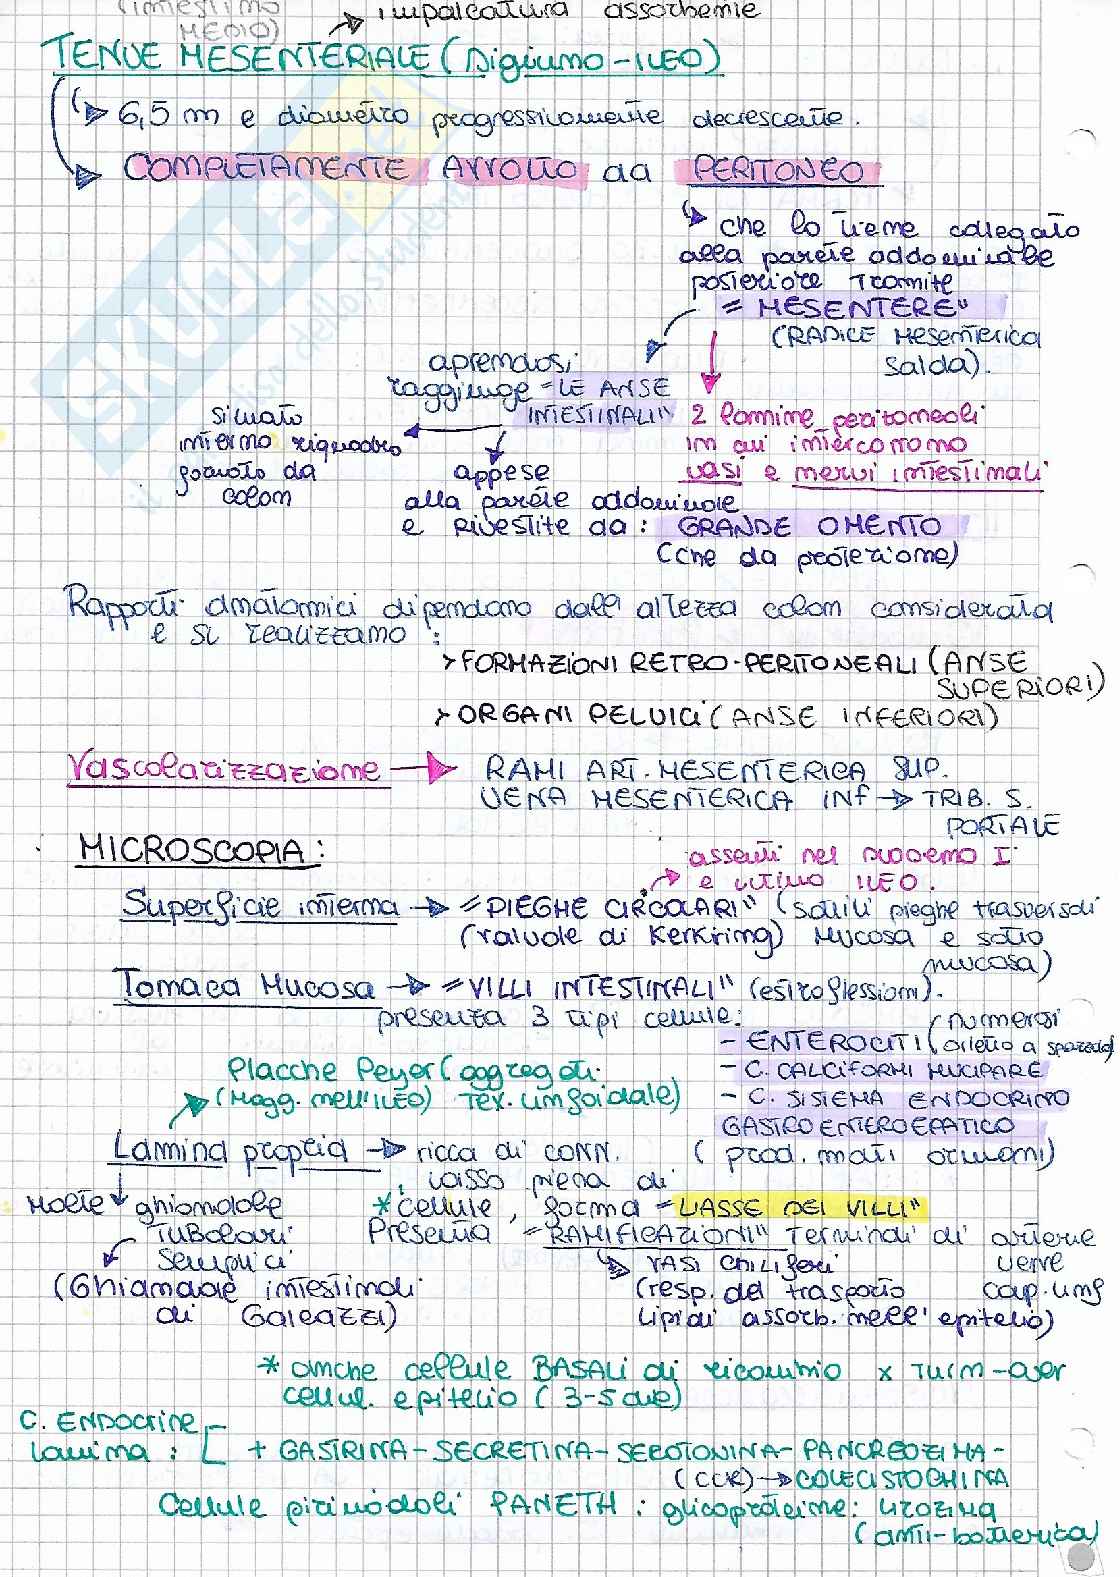 (intestino
MEDIO)
impalcatura assorbente
TENUE MESENTERIALE (Digiuno - ILEO)
6,5 m e diametro progressivamente decrescente.
COMPLETAMENTE AVVOLTO da PERITONEO
che lo tiene collegato
alla parete addominale
posteriore tramite
"MESENTERE"
(RADICE Mesenterica
salda).
aprendosi
raggiunge "LE ANSE
INTESTINALI"
2 lamine peritoneali
in cui intercorrono
vasi e nervi intestinali
situato
interno riquadro
formato da
colon
appese
alla parete addominale
e RIVESTITE da: GRANDE OMENTO
(che da protezione)
Rapporti anatomici dipendono dall'altezza colon considerata
e si realizzano:
> FORMAZIONI RETRO-PERITONEALI (ANSE
SUPERIORI)
> ORGANI PELVICI (ANSE INFERIORI)
Vascolarizzazione → RAMI ART. MESENTERICA SUP.
VENA MESENTERICA INF → TRIB. S.
PORTALE
MICROSCOPIA:
assenti nel duodeno I
e ultimo ILEO.
Superficie interna → "PIEGHE CIRCOLARI" (sottili pieghe trasversali
(valvole di Kerkring) Mucosa e sotto
mucosa)
Tonaca Mucosa → "VILLI INTESTINALI" (estroflessioni).
presenta 3 tipi cellule:
- ENTEROCITI (numerosi
orletto a spazzola)
- C. CALCIFORMI MUCIPARE
- C. SISTEMA ENDOCRINO
GASTROENTEROEPATICO
(prod. mati ormoni)
Placche Peyer (aggregati
(Magg. nell'ILEO) Tex. linfoidale)
Lamina propria → ricca di CONN.
lasso piena di
* cellule, forma "L'ASSE DEI VILLI"
Presenta "RAMIFICAZIONI" Terminali di arterie
vene
cap. linf
VASI Chiliferi
(resp. del trasporto
lipidi assorb. nell'epitelio)
Molte ghiandole
TUBOLARI
Semplici
(Ghiandole intestinali
di Galeazzi)
* anche cellule BASALI di ricambio x Turn-over
cellul. epitelio (3-5 die)
C. ENDOCRINE
lamina : + GASTRINA - SECRETINA - SEROTONINA - PANCREOZIMA -
(CCK) → COLECISTOCHINA
Cellule piramidali PANETH : glicoproteine: LISOZIMA
(anti-batterica)
SKUOLA.net
il paradiso dello studente